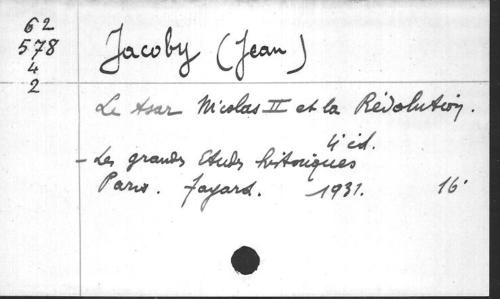 62
578
4
2
Jacoby (Jean)
Le tsar Nicolas II et la Révolution.
4e éd.
- Les grandes Etudes historiques
Paris. Fayard. 1931. 16°